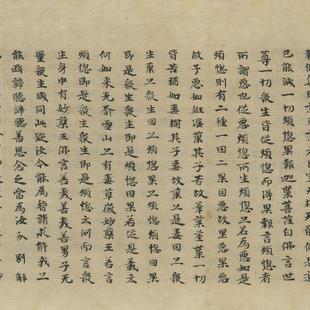 已能滅一切煩惱果報迦葉菩薩白佛言世
尊一切衆生皆從煩惱而得果報言煩惱者
所謂惡也從惡煩惱所生煩惱亦名爲惡如是
煩惱則有二種一因二果因惡故果惡果惡
故子惡如絍婆菓其子苦故華菓莖葉一切
皆苦猶如毒樹其子毒故菓亦是毒因亦衆
生菓亦衆生因亦煩惱果亦煩惱煩惱因果
即是衆生衆生即是煩惱因果若從是義云
何如來先喻雪山亦有毒草微妙藥王若言
煩惱即是衆生衆生即是煩惱云何而言衆
生身中有妙藥王佛言善哉善哉善男子无
量衆生咸同此疑汝今能爲啓請求解我亦
能斷諦聽諦聽善思念之當爲汝分別解